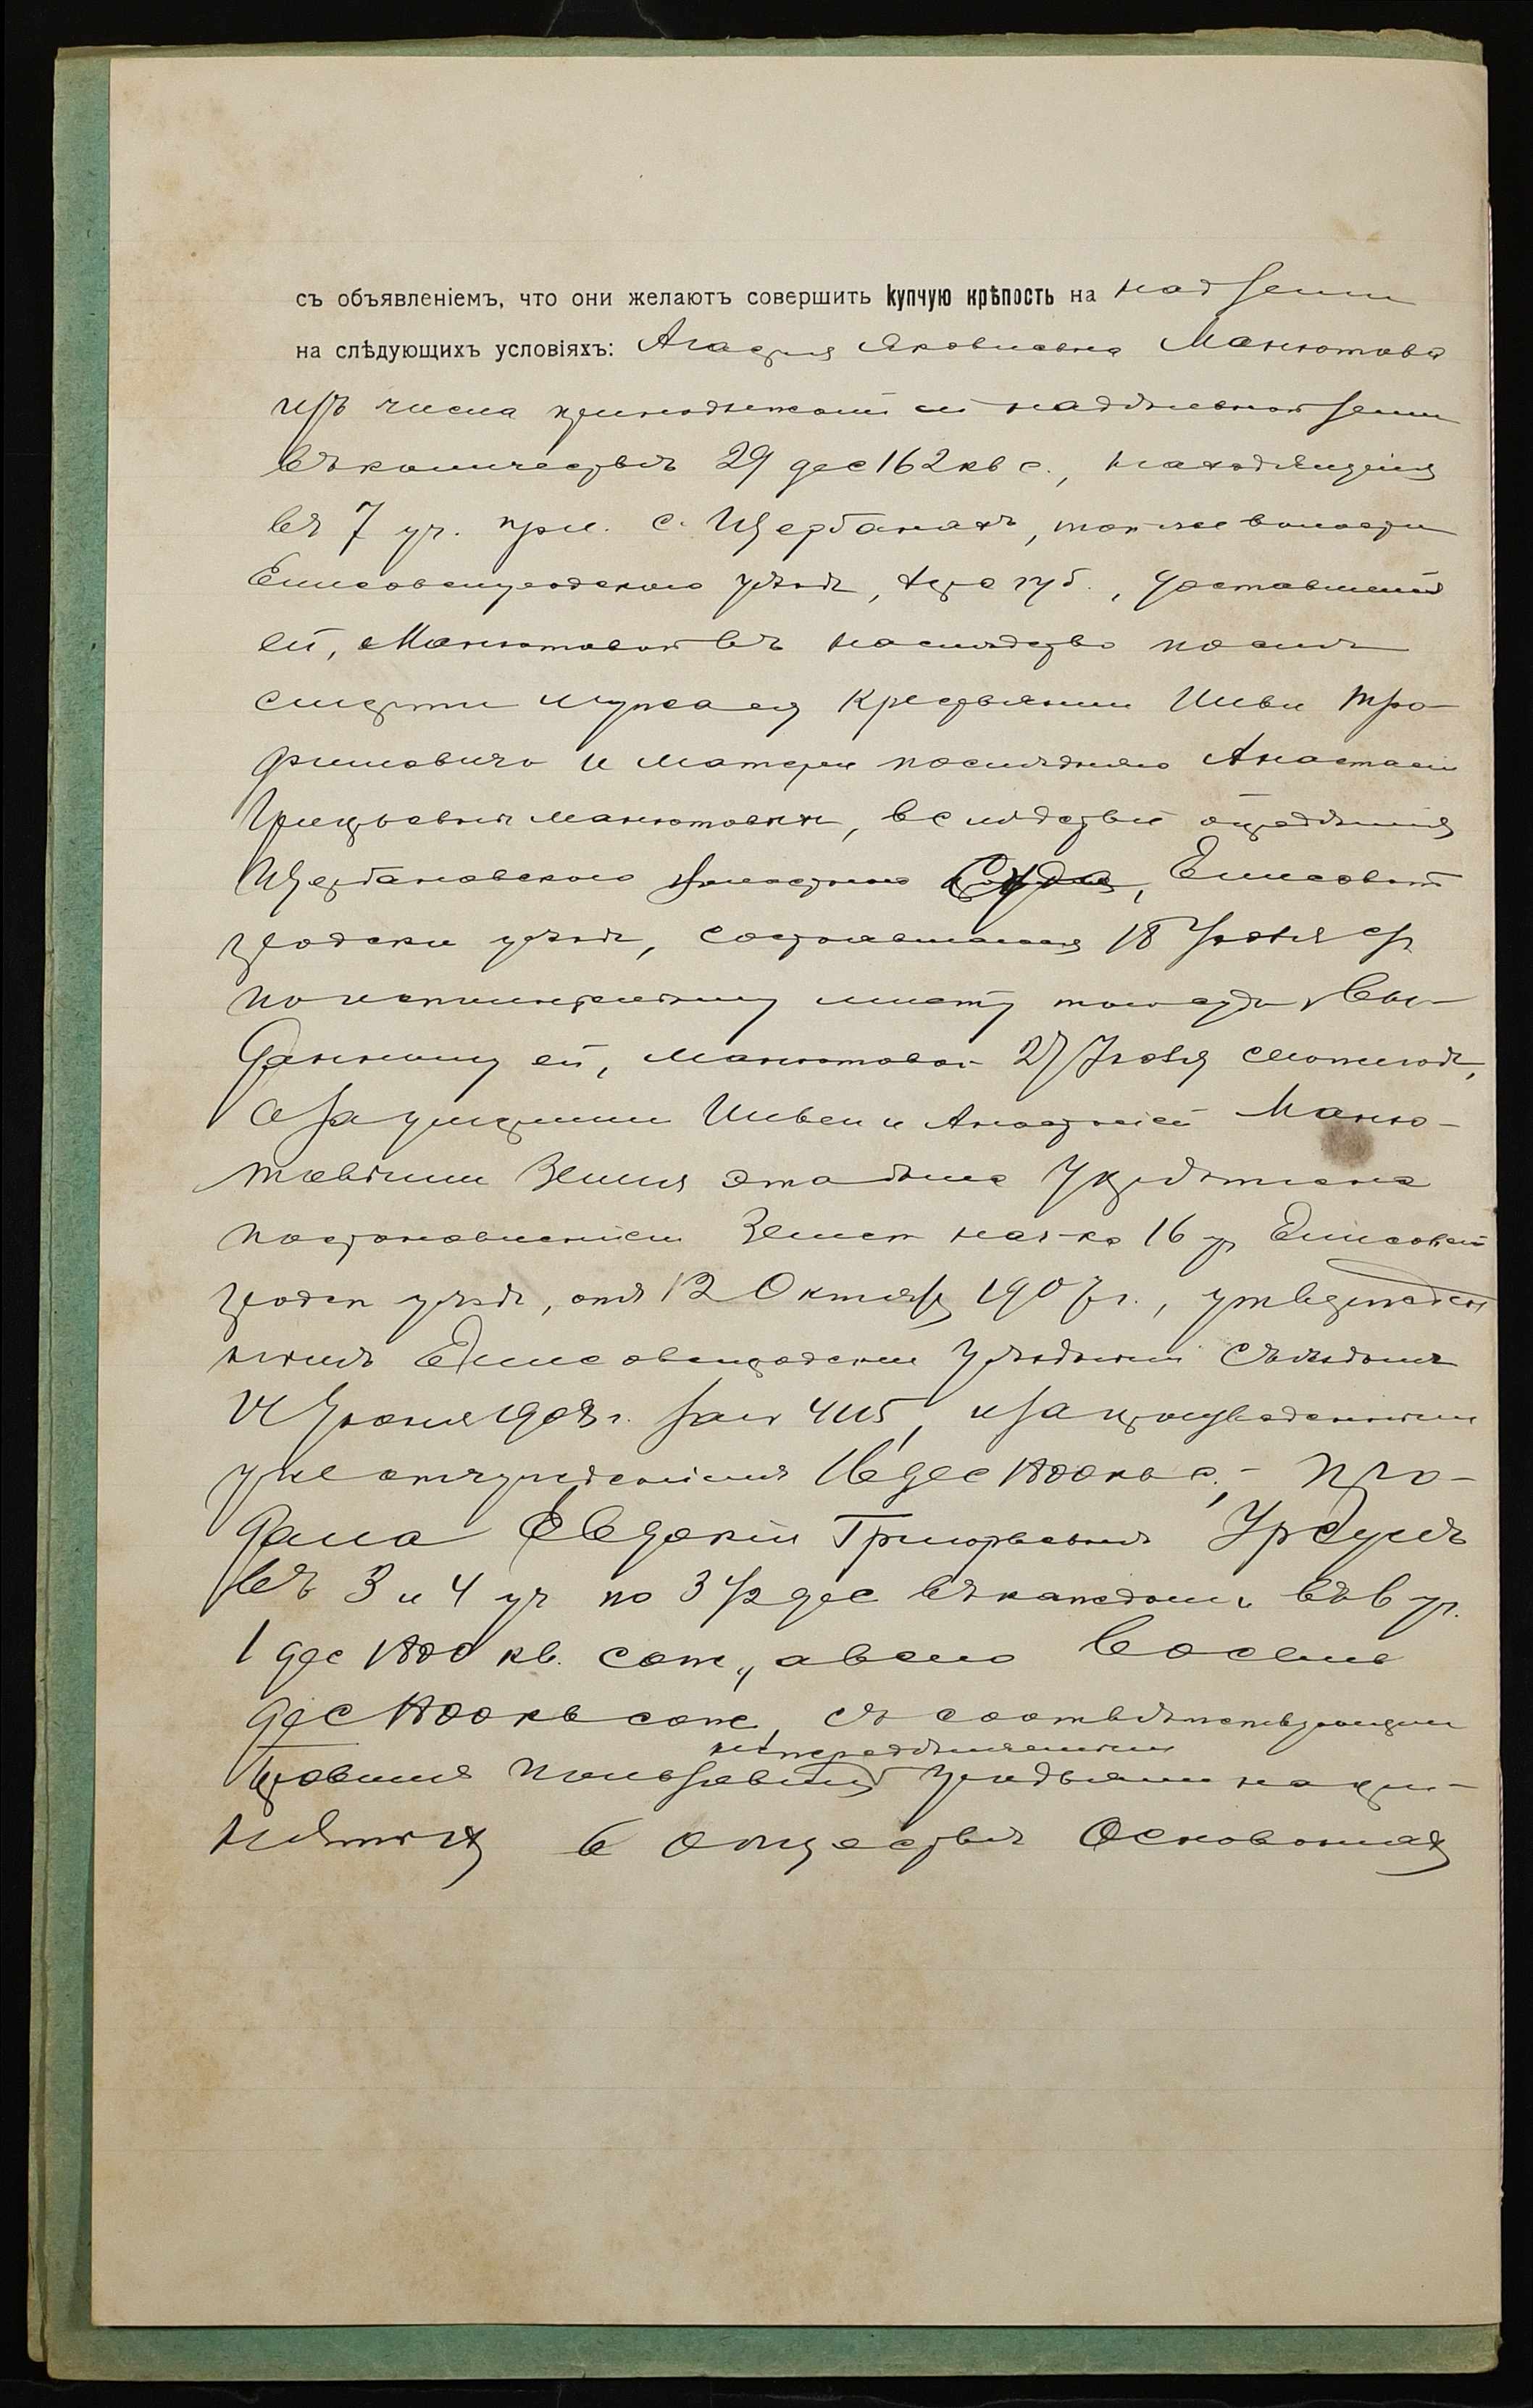 съ объявленіемъ, что они желаютъ совершить купчую крѣпость на над земли
на слѣдующихъ условіяхъ: Агафія Яковлевна Манютова
изъ числа принадлежащей ей надѣльной земли
въ количествѣ 29 дес 162 кв с., находящейся
въ 7 уч. при с. Щербанахъ, той же волости
Елисаветградскаго уѣзда, Хер губ., доставшейся
ей, Манютовой въ наслѣдство послѣ
смерти мужа ея крестьянина Ильи Тро-
фимовича и матери послѣдняго Анастасіи
Григорьевны Манютовыхъ, вслѣдствіе опредѣленія
Щербановскаго Волостного Суда, Елисавет
градск уѣзда, состоявшагося 18
по исполнительному листу того суда, вы-
данному ей, Манютовой 27 сего года,
а за умершими Ильей и Анастасіей Маню-
товыми земля эта была укрѣплена
постановленіемъ Земск нач-ка 16 уч Елисавет
градск уѣзда, отъ 12 Октября 1907 г., утвержден
нымъ Елисаветградскимъ Уѣзднымъ Съѣздомъ
Іюня 1908 г. за № и за произведеннымъ
уже отчужденіемъ дес кв с., - про-
дала Евдокіи Григорьевнѣ Урсулъ
въ 3 и 4 уч по 3 1/2 дес въ каждомъ и въ 6 уч.
1 дес 1800 кв. саж., а всего восемь
дес 1800 кв саж, съ соотвѣтствующимъ
непередѣляемыми
правомъ пользованія угодьями на при-
нятыхъ в обществѣ основаніяхъ